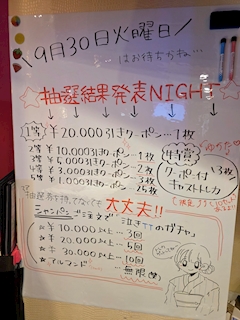 ＼9月30日火曜日／
…はお待ちかね…
★抽選結果発表NIGHT★
1等 ¥20.000引きクーポン…1枚
2等 ¥10.000引きクーポン…1枚
3等 ¥5.000引きクーポン…2枚
4等 ¥3.000引きクーポン
¥1.000引きクーポン
特賞
クーポン付
キャストトレカ
13枚
抽選券を持ってなくても大丈夫!!
シャンパンご注文で泣きのガチャ♪
☆¥10.000以上…3回
☆¥20.000以上
☆¥30.000以上…10回
☆アルマンド…無限